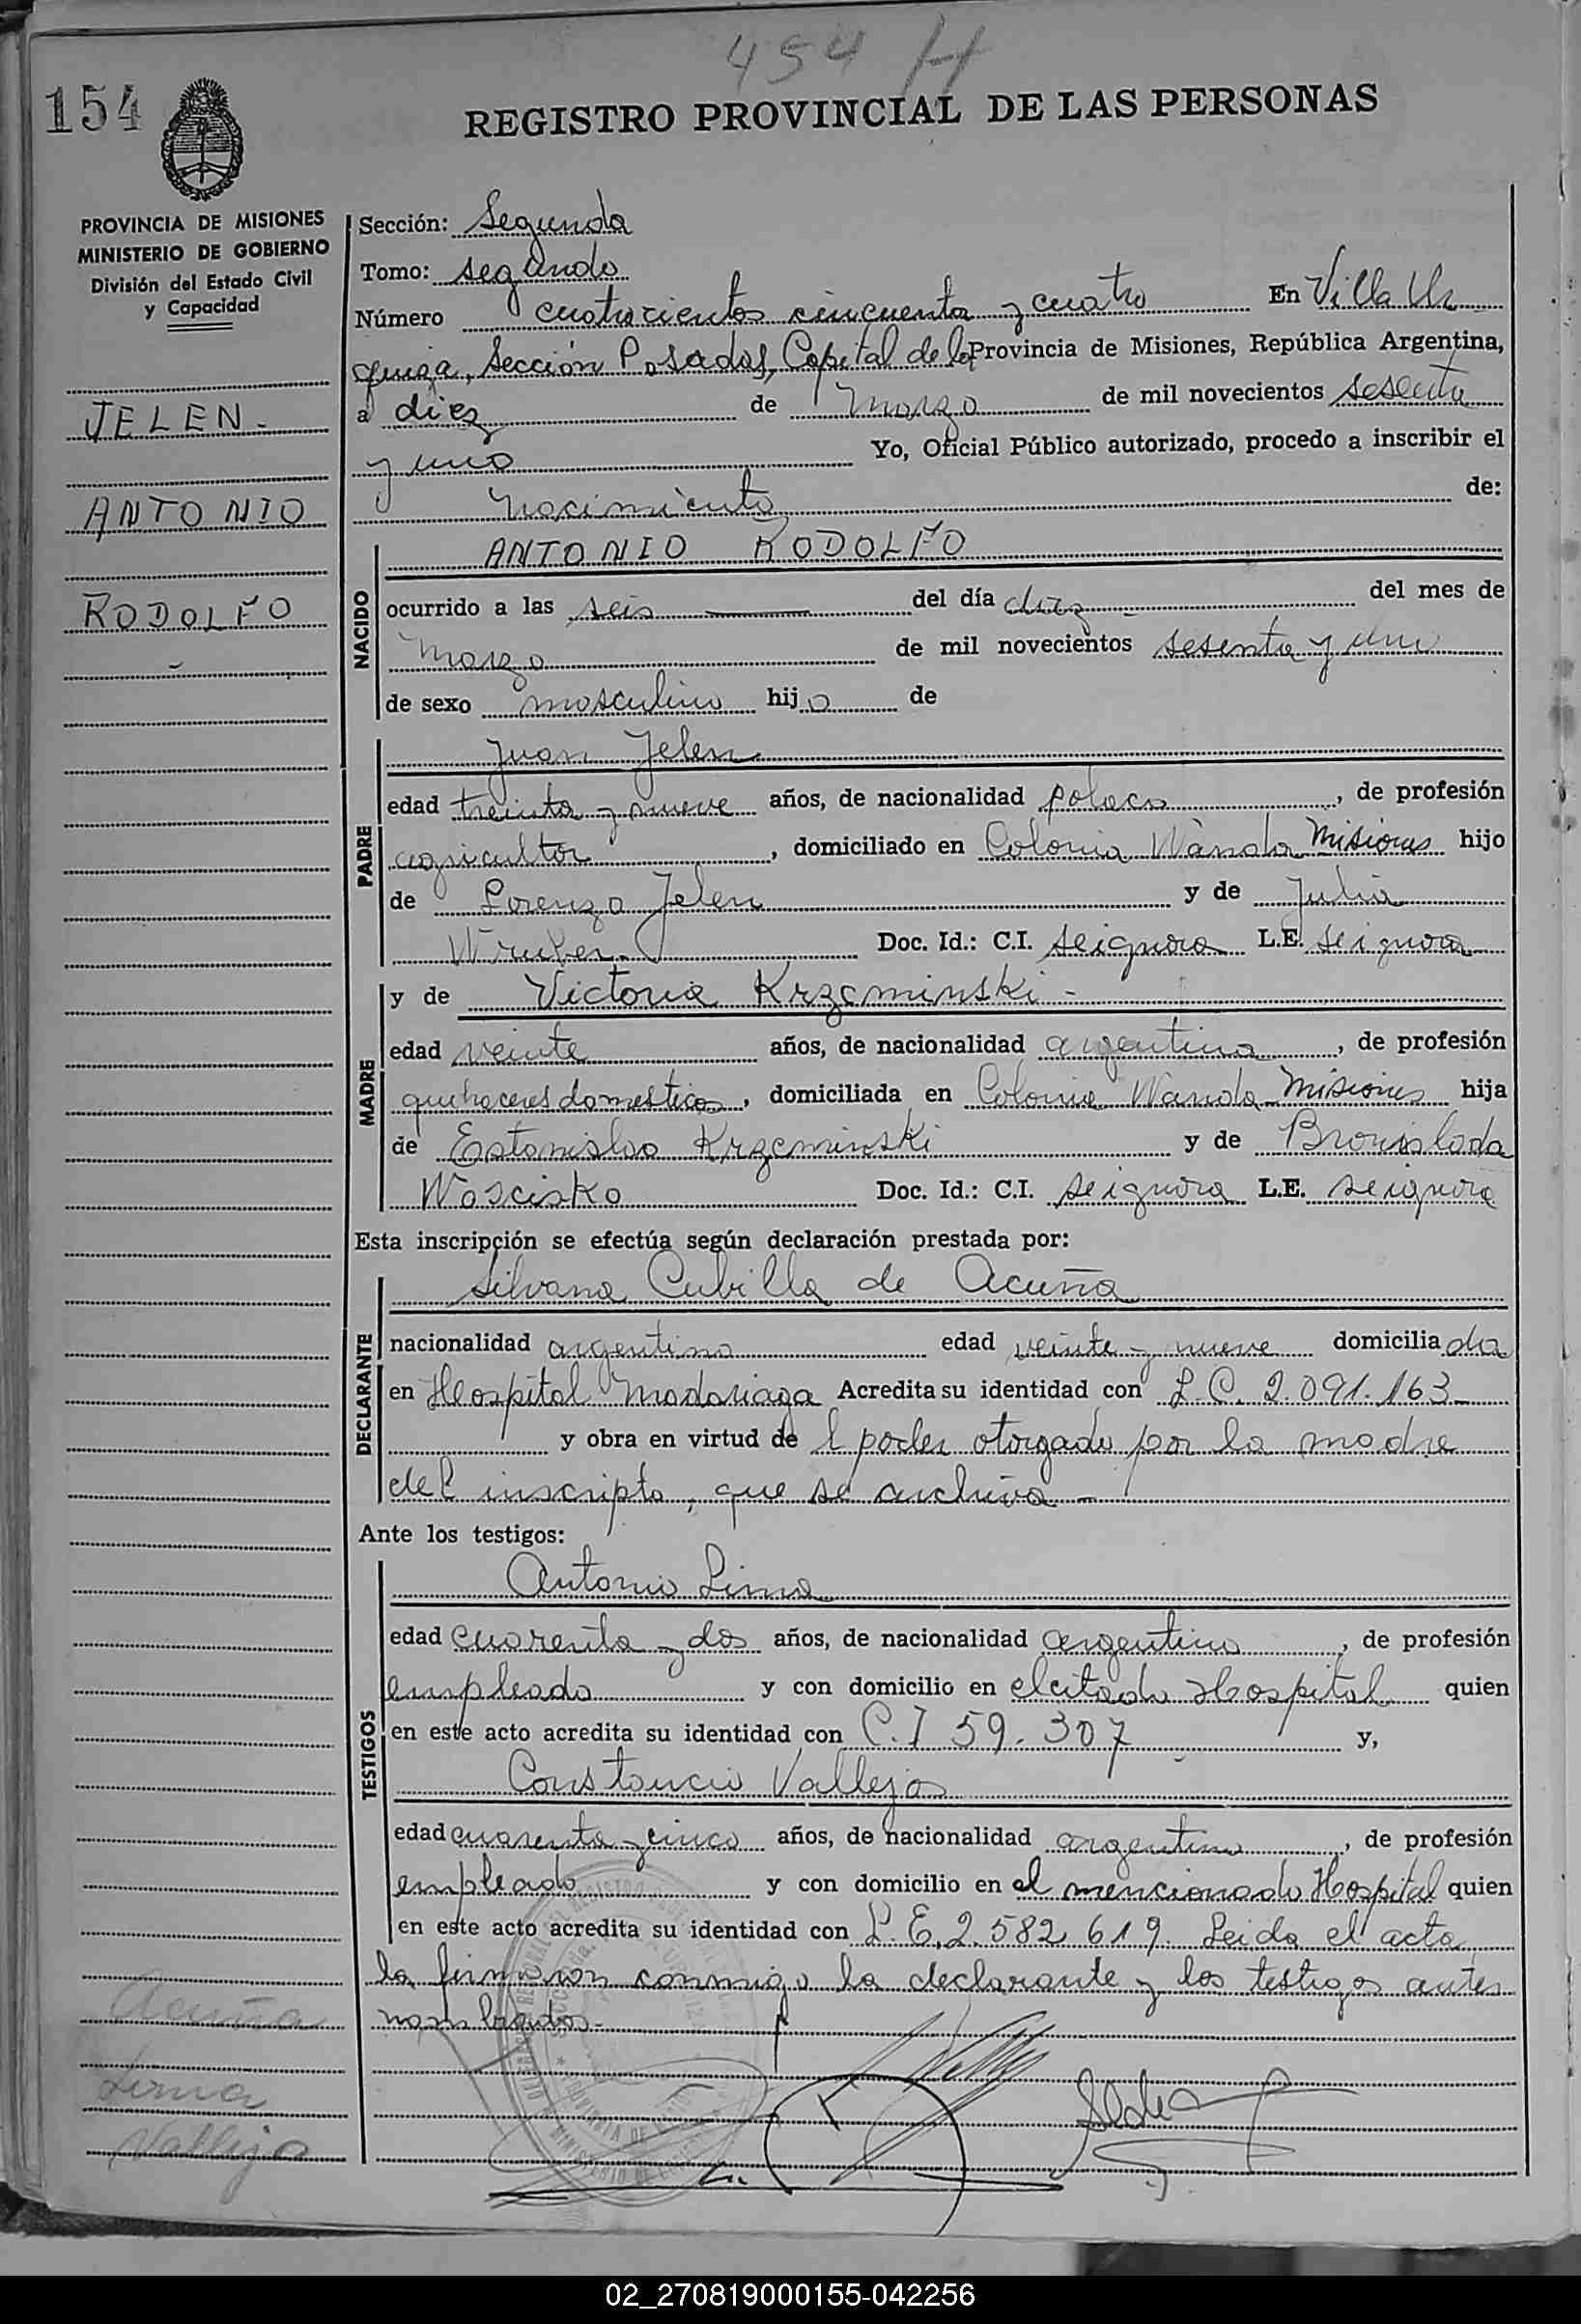 454 H
154
REGISTRO PROVINCIAL DE LAS PERSONAS
PROVINCIA DE MISIONES
MINISTERIO DE GOBIERNO
División del Estado Civil
y Capacidad
JELEN.
ANTONIO
RODOLFO
Sección: Segunda
Tomo: segundo
Número cuatrocientos cincuenta y cuatro En Villa Ur
quiza, Sección Posadas, Capital de la Provincia de Misiones, República Argentina,
a diez de Marzo de mil novecientos sesenta
y uno Yo, Oficial Público autorizado, procedo a inscribir el
Nacimiento de:
NACIDO
ANTONIO RODOLFO
ocurrido a las seis del día diez del mes de
Marzo de mil novecientos sesenta y uno
de sexo masculino hijo de
PADRE
Juan Jelen
edad treinta y nueve años, de nacionalidad polaca, de profesión
agricultor, domiciliado en Colonia Wanda Misiones hijo
de Lorenzo Jelen y de Julia
Wruber Doc. Id.: C.I. se ignora L.E. se ignora
MADRE
y de Victoria Krzcminski -
edad veinte años, de nacionalidad argentina, de profesión
quehaceres domesticos, domiciliada en Colonia Wanda Misiones hija
de Estanislao Krzcminski y de Bronislada
Woscisko Doc. Id.: C.I. se ignora L.E. se ignora
Esta inscripción se efectúa según declaración prestada por:
DECLARANTE
Silvana Cubilla de Acuña
nacionalidad argentina edad veinte y nueve domiciliada
en Hospital Madariaga Acredita su identidad con L.C. 2.091.163
y obra en virtud del poder otorgado por la madre
del inscripto, que se archiva -
Ante los testigos:
TESTIGOS
Antonio Lima
edad cuarenta y dos años, de nacionalidad argentino, de profesión
empleado y con domicilio en el citado Hospital quien
en este acto acredita su identidad con C.I 59.307 y,
Constancio Vallejos
edad cuarenta y cinco años, de nacionalidad argentino, de profesión
empleado y con domicilio en el mencionado Hospital quien
en este acto acredita su identidad con L.E. 2.582.619. Leida el acta
la firmaron conmigo la declarante y los testigos antes
nombrados.-
Acuña
Lima
Vallejo
02_270819000155-042256